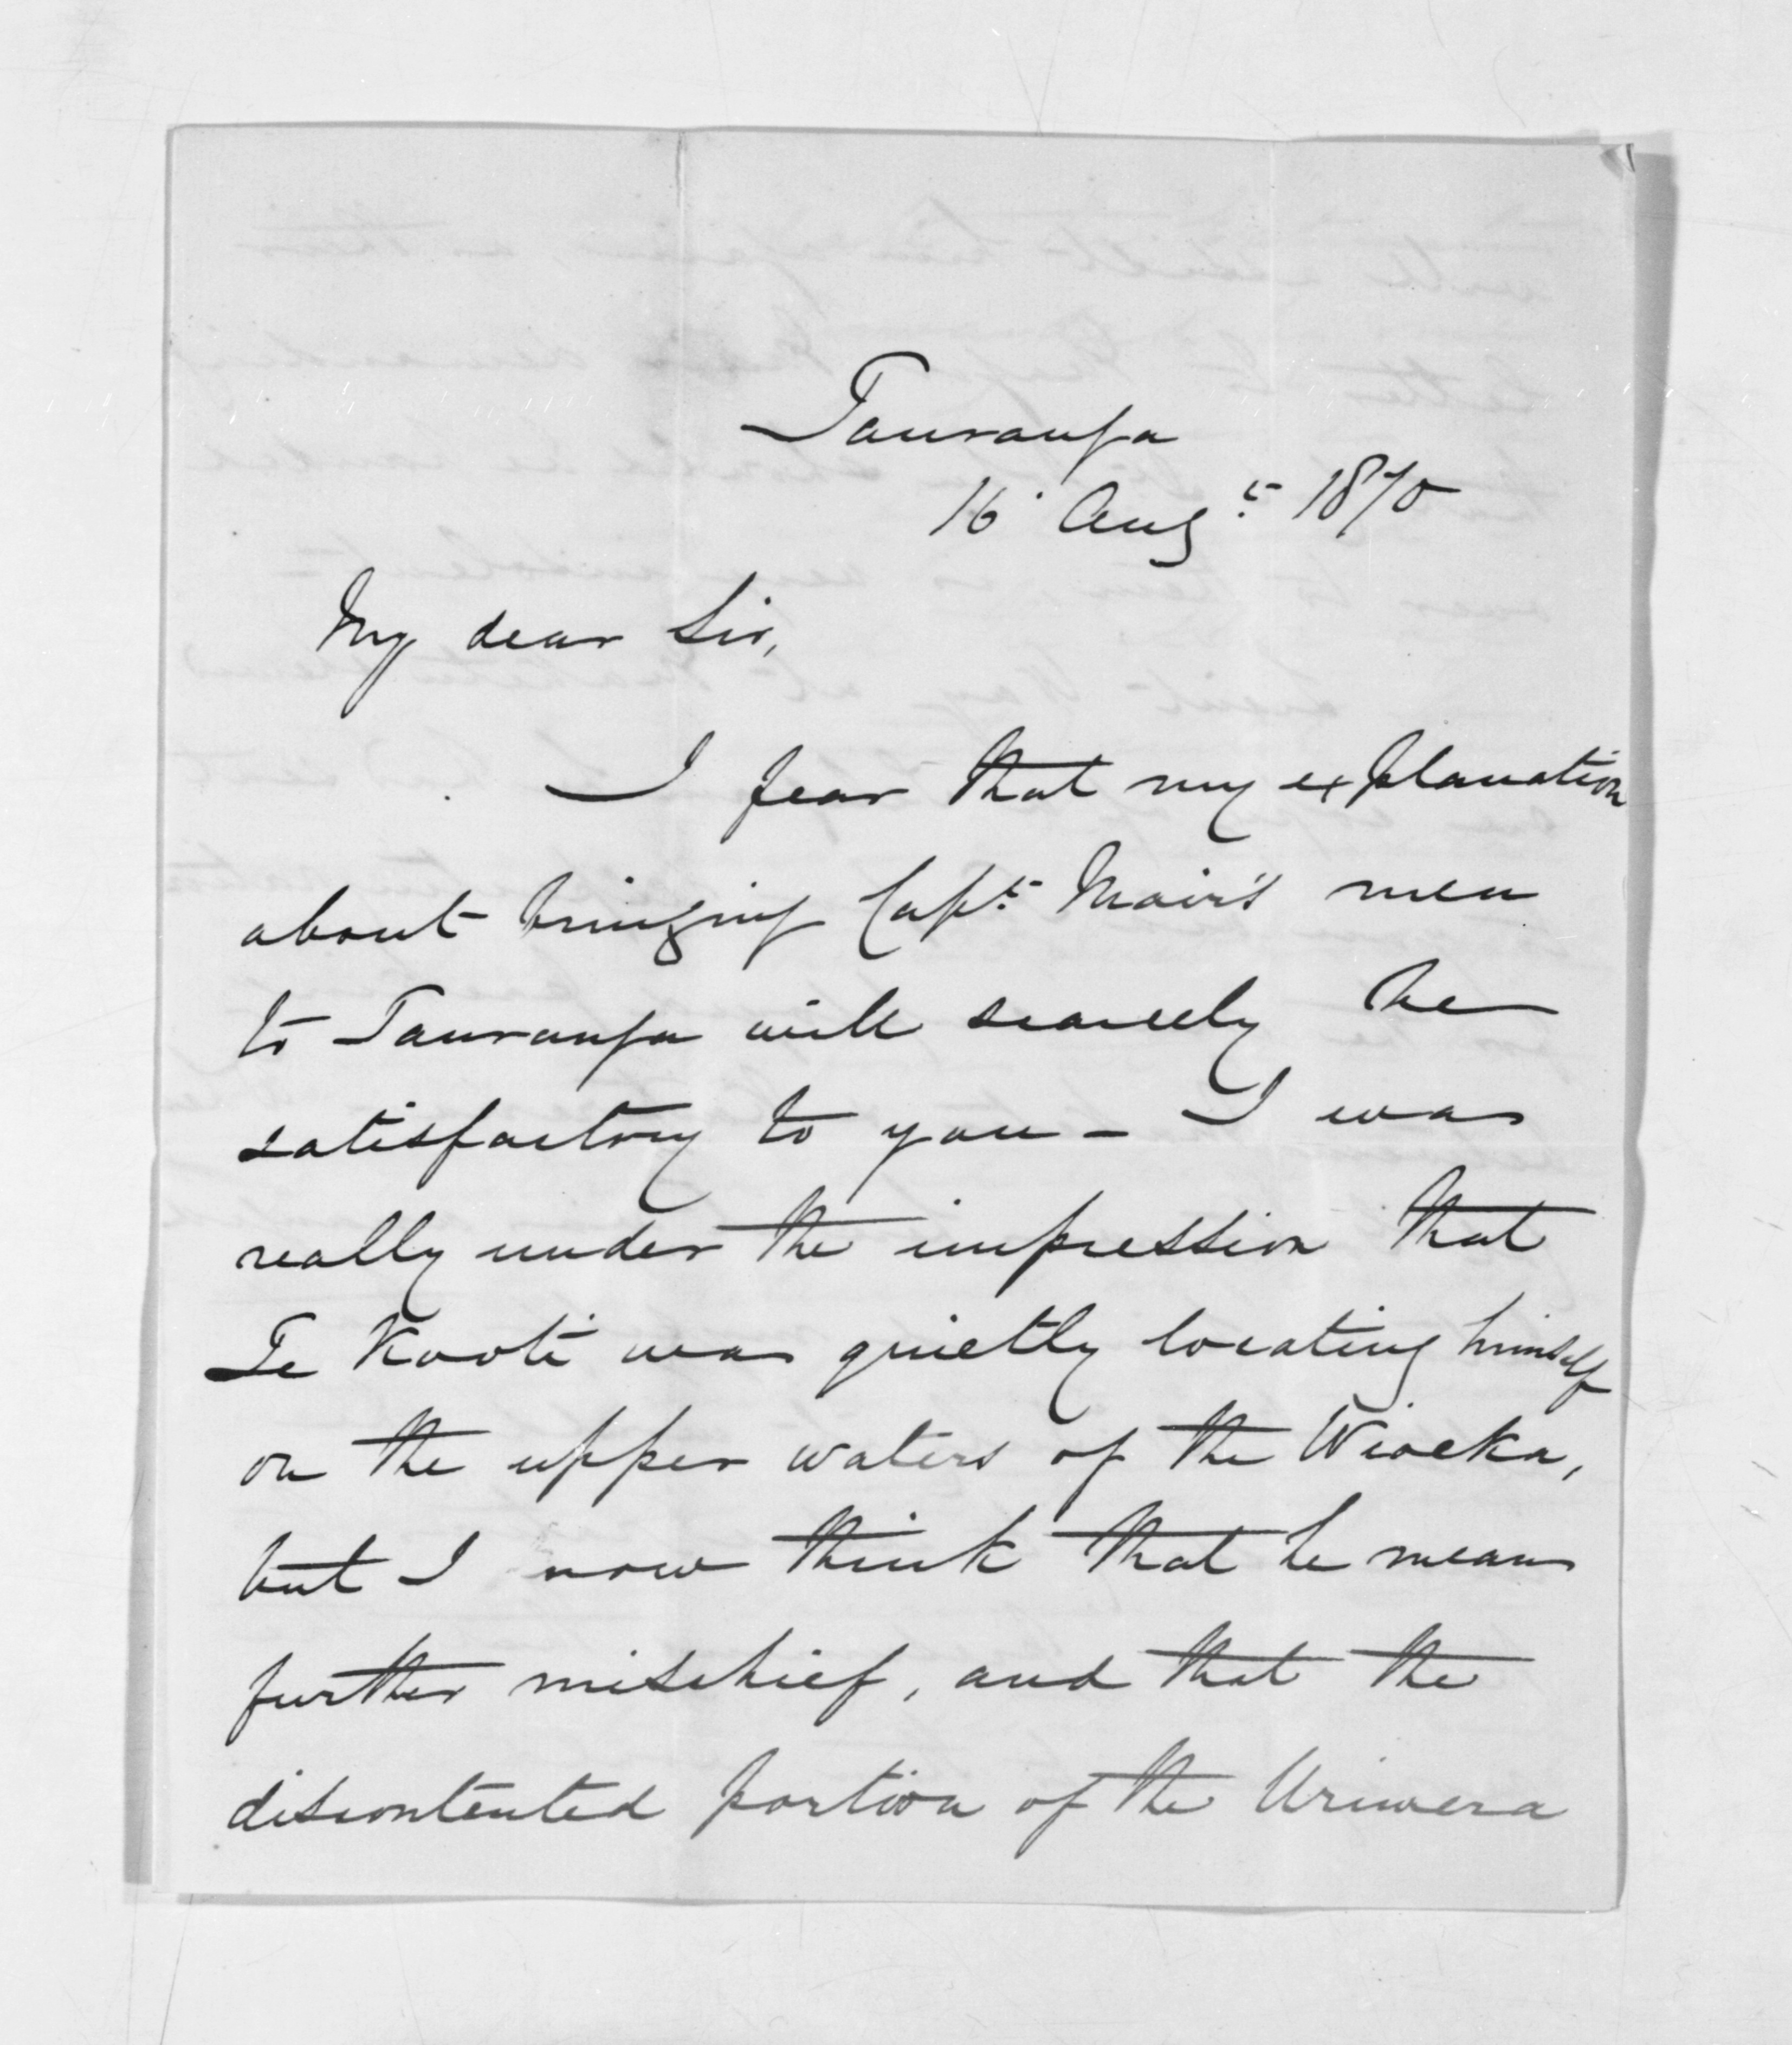 Tauranga
16 Augt 1870
My dear Sir,
I fear that my explanation
about bringing Capt. Mair's men
to Tauranga will scarcely be
satisfactory to you – I was
really under the impression that
Te Kooti was quietly locating himself
on the upper waters of the Wioeka,
but I now think that he means
further mischief, and that the
discontented portion of the Uriwera